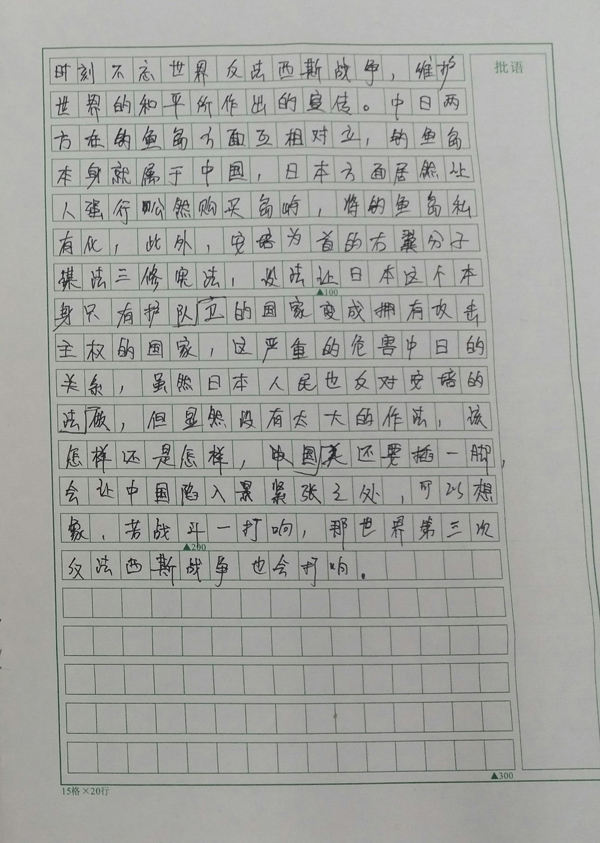 时刻不忘世界反法西斯战争，维护
批语
世界的和平所作出的宣传。中日两
方在钓鱼岛方面互相对立，钓鱼岛
本身就属于中国，日本方面居然让
人强行公然购买岛屿，将钓鱼岛私
有化，此外，安培为首的右翼分子
谋法三修宪法，设法让日本这个本
▲100
身只有护队卫的国家变成拥有攻击
主权的国家，这严重的危害中日的
关系，虽然日本人民也反对安培的
法做，但显然没有太大的作法，该
怎样还是怎样，中国美还要插一脚，
会让中国陷入最紧张之处，可以想
象，若战斗一打响，那世界第三次
▲200
反法西斯战争也会打响。
▲300
15格×20行